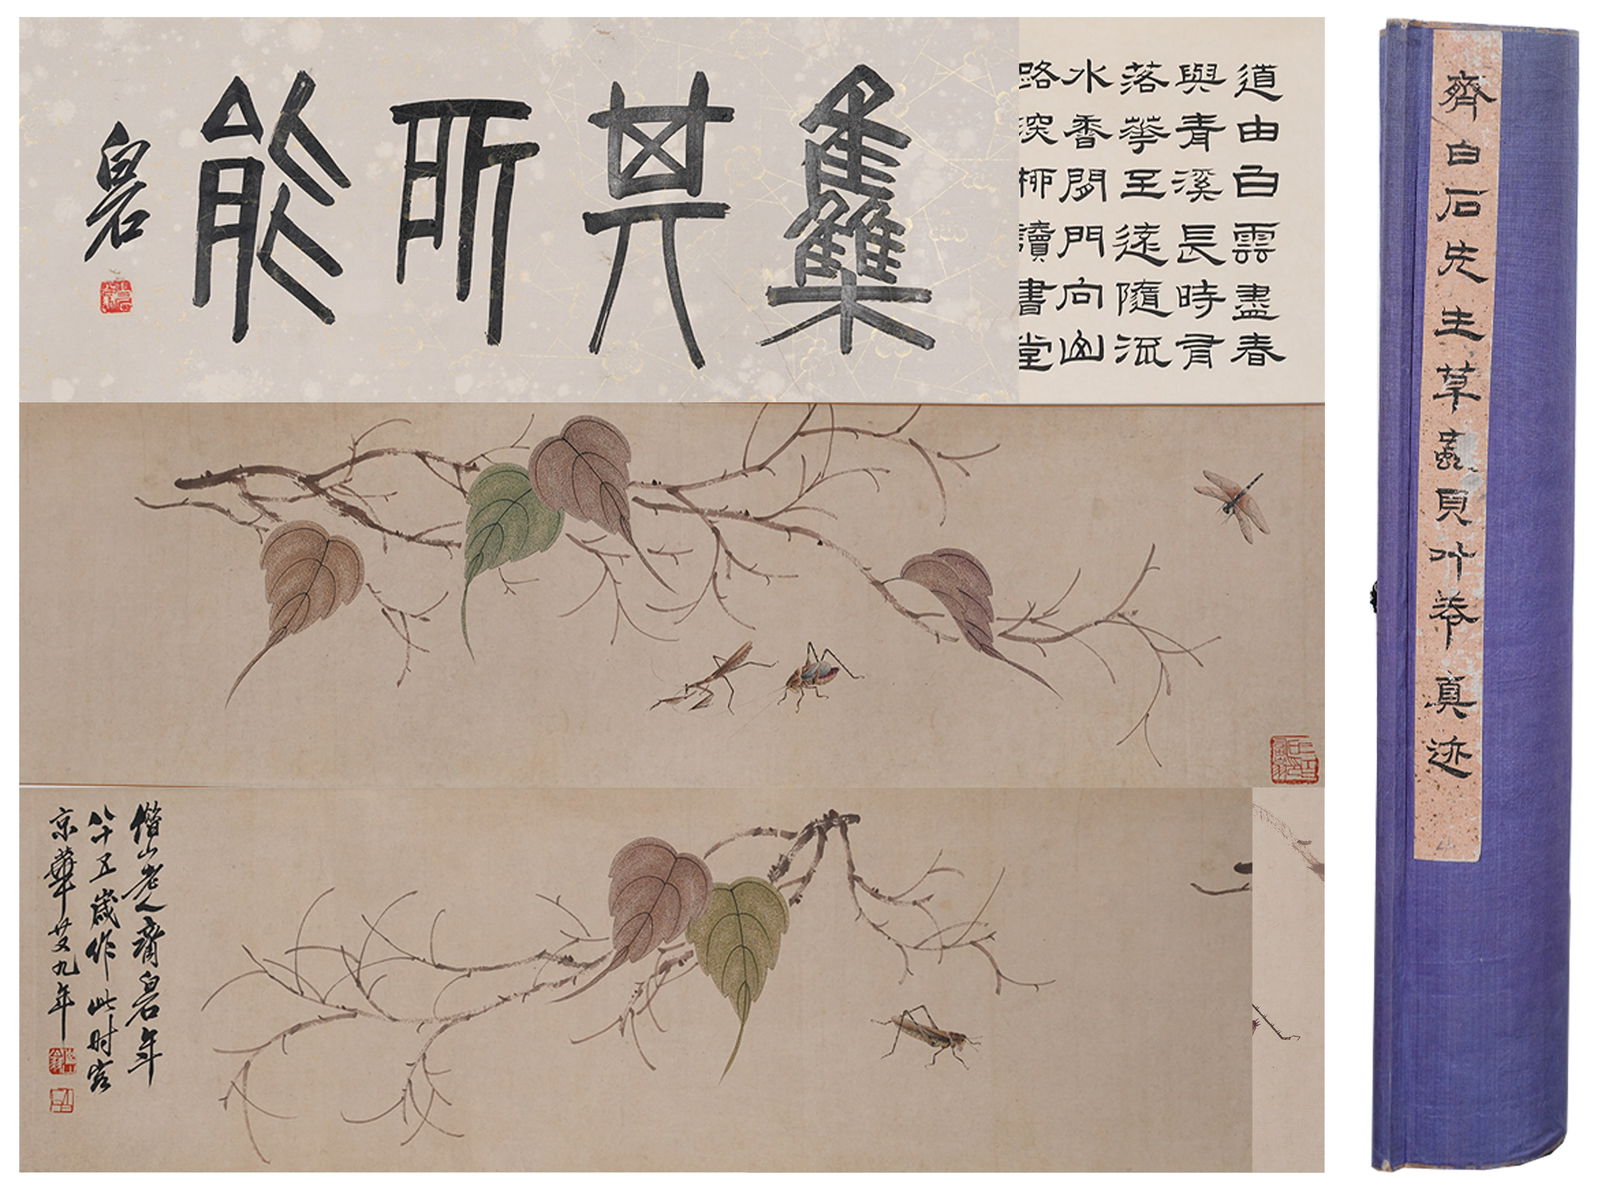 集其所能
白石
道由白雲盡春
與青溪長時有
落華至遠隨流
水香閒門向山
路深柳讀書堂
借山老人齊白石年
八十五歲作此时客
京華廿又九年
齊白石先生草蟲貝叶卷真迹